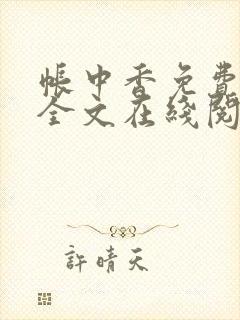 帳中香免費
全文在綫閱
許晴天